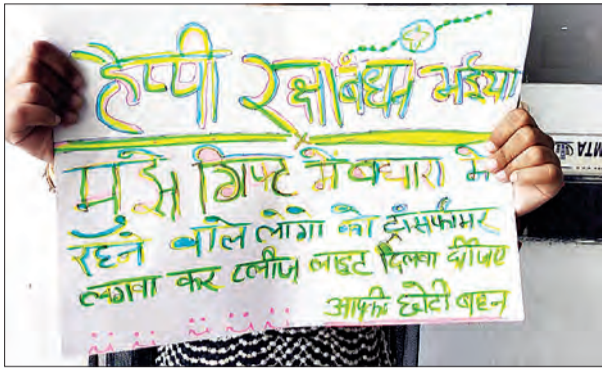 हैप्पी रक्षाबंधन भईया
मुझे गिफ्ट में बधारा मे
रहने वाले लोगो को ट्रांसफार्मर
लगवा कर प्लीज लाइट दिलवा दीजिए
आपकी छोटी बहन
MTA